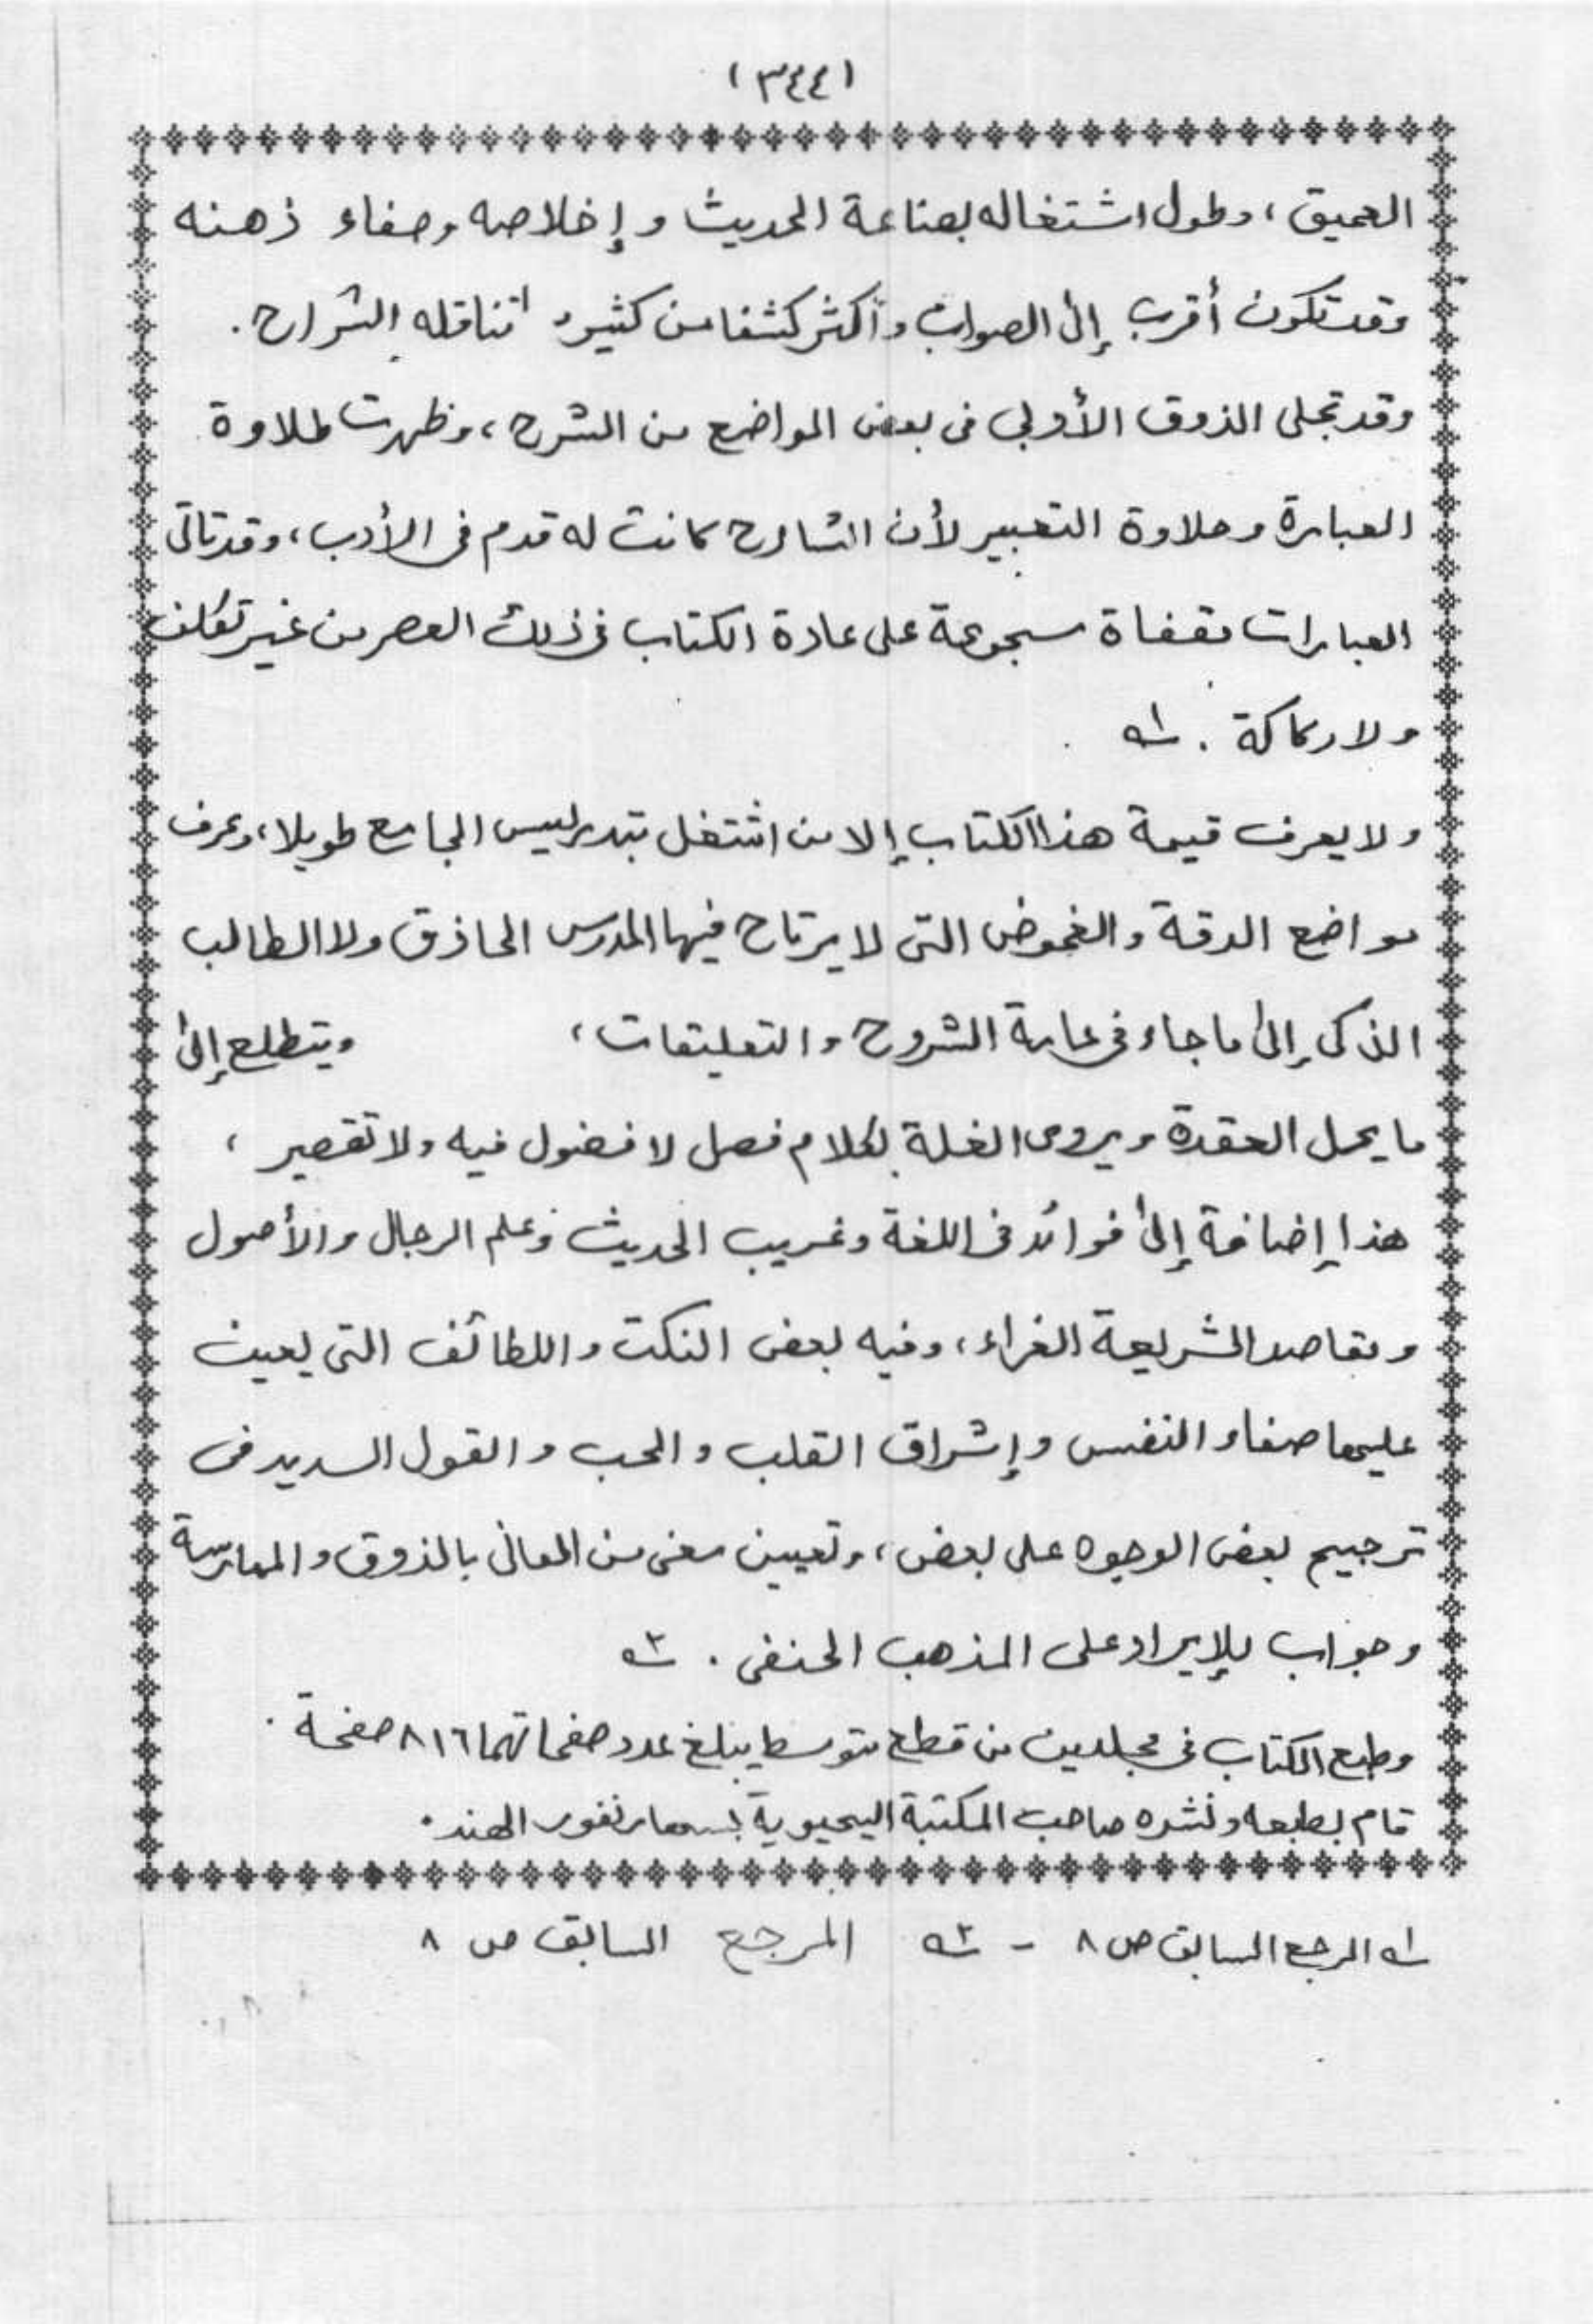 (٣٤٤)
العميق، وطول اشتغاله بصناعة الحديث وإخلاصه وصفاء ذهنه
وقد تكون أقرب إلى الصواب وأكثر كشفا من كثير تناقله الشراح.
وقد تجلى الذوق الأدبي في بعض المواضع من الشرح، وظهرت طلاوة
العبارة وحلاوة التعبير لأن الشارح كانت له قدم في الأدب، وقد تأتى
العبارات مقفاة مسجوعة على عادة الكتاب في ذلك العصر من غير تكلف
ولا ركاكة. ١ه
ولا يعرف قيمة هذا الكتاب إلا من اشتغل بتدريس الجامع طويلا، وعرف
مواضع الدقة والغموض التى لا يرتاح فيها المدرس الحاذق ولا الطالب
الذكى إلى ما جاء في عامة الشروح والتعليقات، ويتطلع إلى
ما يحل العقدة ويروى الغلة بكلام فصل لا فضول فيه ولا تقصير،
هذا إضافة إلى فوائد في اللغة وغريب الحديث وعلم الرجال والأصول
ومقاصد الشريعة الغراء، وفيه بعض النكت واللطائف التى يعين
عليها صفاء النفس وإشراق القلب والحب والقول السديد في
ترجيح بعض الوجوه على بعض، وتعيين معنى من المعانى بالذوق والممارسة
وجواب للإيراد على المذهب الحنفى. ٢ه
وطبع الكتاب في مجلدين من قطع متوسط يبلغ عدد صفحاتهما ٨١٦ صفحة.
قام بطبعه ونشره صاحب المكتبة اليحيوية بسهارنفور الهند.
١ه المرجع السابق ص ٨ - ٢ه المرجع السابق ص ٨